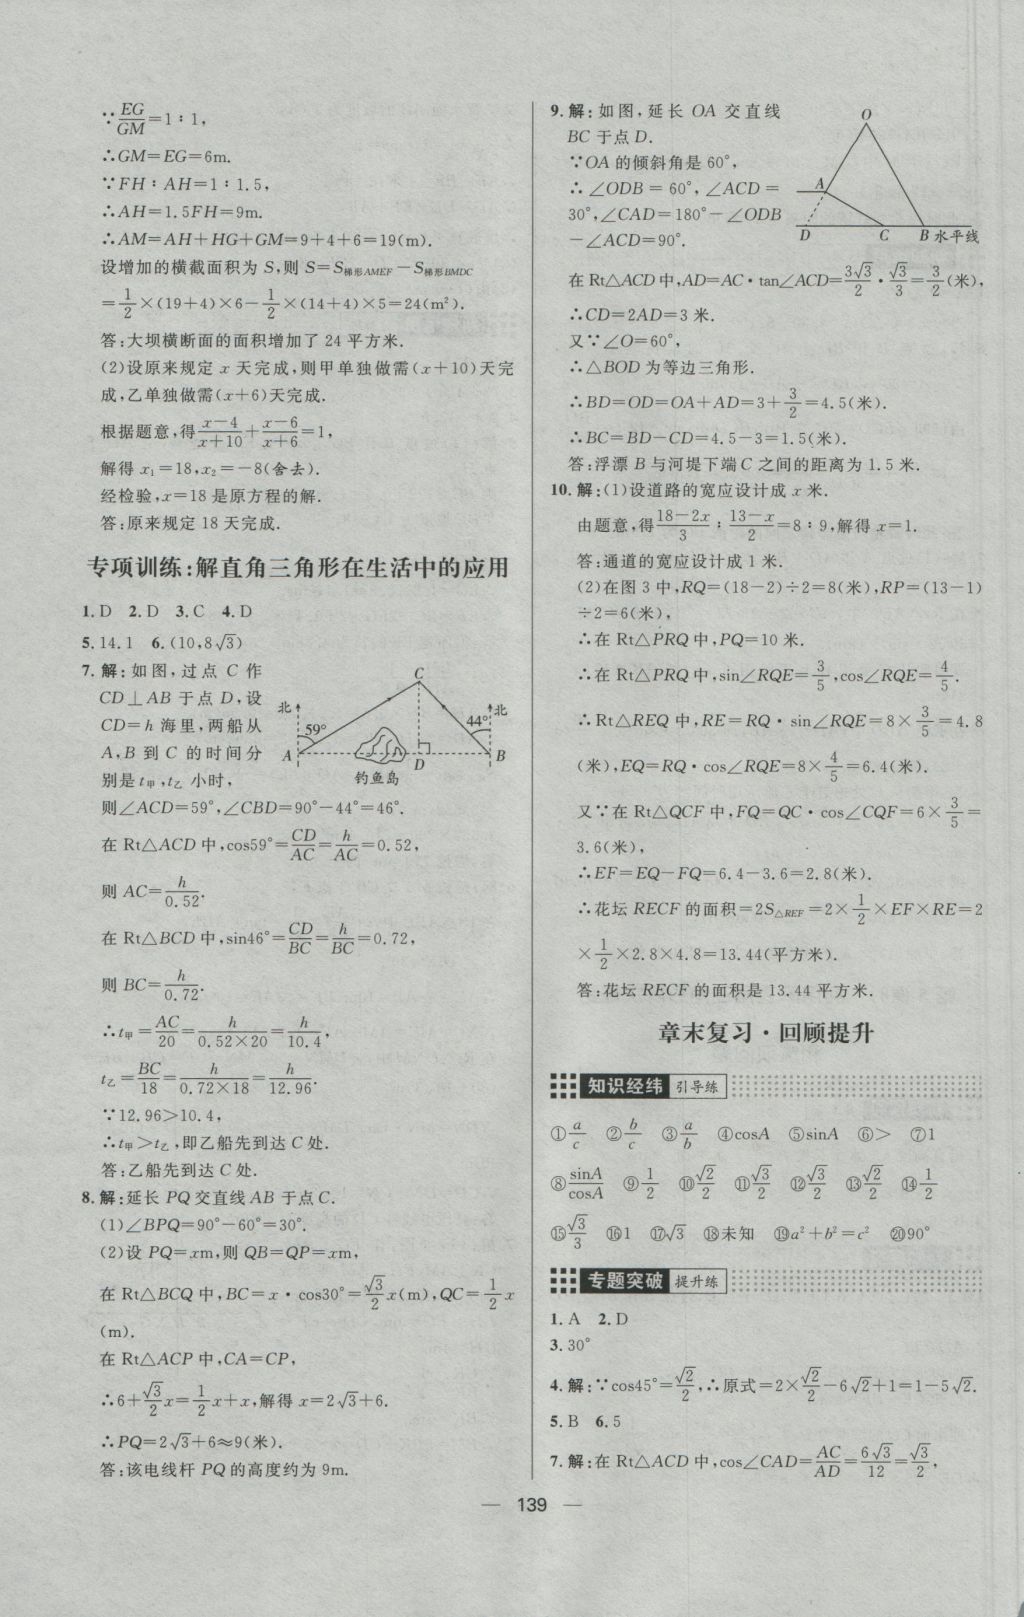 ∵EG/GM=1∶1,
∴GM=EG=6m.
∵FH∶AH=1∶1.5,
∴AH=1.5FH=9m.
∴AM=AH+HG+GM=9+4+6=19(m).
设增加的横截面积为 S,则 S=S梯形AMEF-S梯形BMDC
=1/2×(19+4)×6-1/2×(14+4)×5=24(m²).
答:大坝横断面的面积增加了 24 平方米.
(2)设原来规定 x 天完成,则甲单独做需(x+10)天完
成,乙单独做需(x+6)天完成.
根据题意,得(x-4)/(x+10)+(x-6)/(x+6)=1,
解得 x₁=18,x₂=-8(舍去).
经检验,x=18 是原方程的解.
答:原来规定 18 天完成.
专项训练:解直角三角形在生活中的应用
1.D 2.D 3.C 4.D
5.14.1 6.(10,8√3)
7.解:如图,过点 C 作
CD⊥AB 于点 D,设
CD=h 海里,两船从
A,B 到 C 的时间分
别是 t甲,t乙 小时,
C
北
59°
44°
北
A
D
B
钓鱼岛
则∠ACD=59°,∠CBD=90°-44°=46°.
在 Rt△ACD 中,cos59°=CD/AC=h/AC=0.52,
则 AC=h/0.52.
在 Rt△BCD 中,sin46°=CD/BC=h/BC=0.72,
则 BC=h/0.72.
∴t甲=AC/20=h/(0.52×20)=h/10.4,
t乙=BC/18=h/(0.72×18)=h/12.96.
∵12.96>10.4,
∴t甲>t乙,即乙船先到达 C 处.
答:乙船先到达 C 处.
8.解:延长 PQ 交直线 AB 于点 C.
(1)∠BPQ=90°-60°=30°.
(2)设 PQ=xm,则 QB=QP=xm,
在 Rt△BCQ 中,BC=x·cos30°=√3/2x(m),QC=1/2x
(m).
在 Rt△ACP 中,CA=CP,
∴6+√3/2x=1/2x+x,解得 x=2√3+6.
∴PQ=2√3+6≈9(米).
答:该电线杆 PQ 的高度约为 9m.
9.解:如图,延长 OA 交直线
BC 于点 D.
∵OA 的倾斜角是 60°,
∴∠ODB=60°,∠ACD=
30°,∠CAD=180°-∠ODB
-∠ACD=90°.
O
A
D
C
B 水平线
在 Rt△ACD 中,AD=AC·tan∠ACD=3√3/2·√3/3=3/2(米),
∴CD=2AD=3 米.
又∵∠O=60°,
∴△BOD 为等边三角形.
∴BD=OD=OA+AD=3+3/2=4.5(米).
∴BC=BD-CD=4.5-3=1.5(米).
答:浮漂 B 与河堤下端 C 之间的距离为 1.5 米.
10.解:(1)设道路的宽应设计成 x 米.
由题意,得(18-2x)/3∶(13-x)/2=8∶9,解得 x=1.
答:通道的宽应设计成 1 米.
(2)在图 3 中,RQ=(18-2)÷2=8(米),RP=(13-1)
÷2=6(米),
∴在 Rt△PRQ 中,PQ=10 米.
∴在 Rt△PRQ 中,sin∠RQE=3/5,cos∠RQE=4/5.
∴Rt△REQ 中,RE=RQ·sin∠RQE=8×3/5=4.8
(米),EQ=RQ·cos∠RQE=8×4/5=6.4(米).
又∵在 Rt△QCF 中,FQ=QC·cos∠CQF=6×3/5=
3.6(米),
∴EF=EQ-FQ=6.4-3.6=2.8(米).
∴花坛 RECF 的面积=2S△REF=2×1/2×EF×RE=2
×1/2×2.8×4.8=13.44(平方米).
答:花坛 RECF 的面积是 13.44 平方米.
章末复习·回顾提升
知识经纬 引导练
①a/c ②b/c ③a/b ④cosA ⑤sinA ⑥> ⑦1
⑧sinA/cosA ⑨1/2 ⑩√2/2 ⑪√3/2 ⑫√3/2 ⑬√2/2 ⑭1/2
⑮√3/3 ⑯1 ⑰√3 ⑱未知 ⑲a²+b²=c² ⑳90°
专题突破 提升练
1.A 2.D
3.30°
4.解:∵cos45°=√2/2,∴原式=2×√2/2-6√2+1=1-5√2.
5.B 6.5
7.解:在 Rt△ACD 中,cos∠CAD=AC/AD=6√3/12=√3/2,
— 139 —